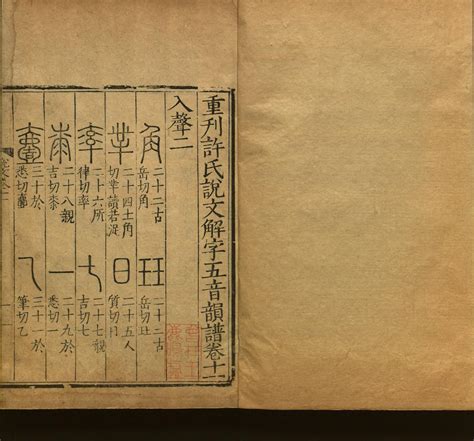 重刊許氏說文解字五音韻譜卷十一
入聲二
角 二十二古
岳切角
玨 二十三古
岳切玨
丵 二十四士角
切丵讀若浞
日 二十五人
質切日
率 二十六所
律切率
七 二十七親
吉切七
桼 二十八親
吉切桼
一 二十九於
悉切一
壹 三十於
悉切壹
乙 三十一於
筆切乙